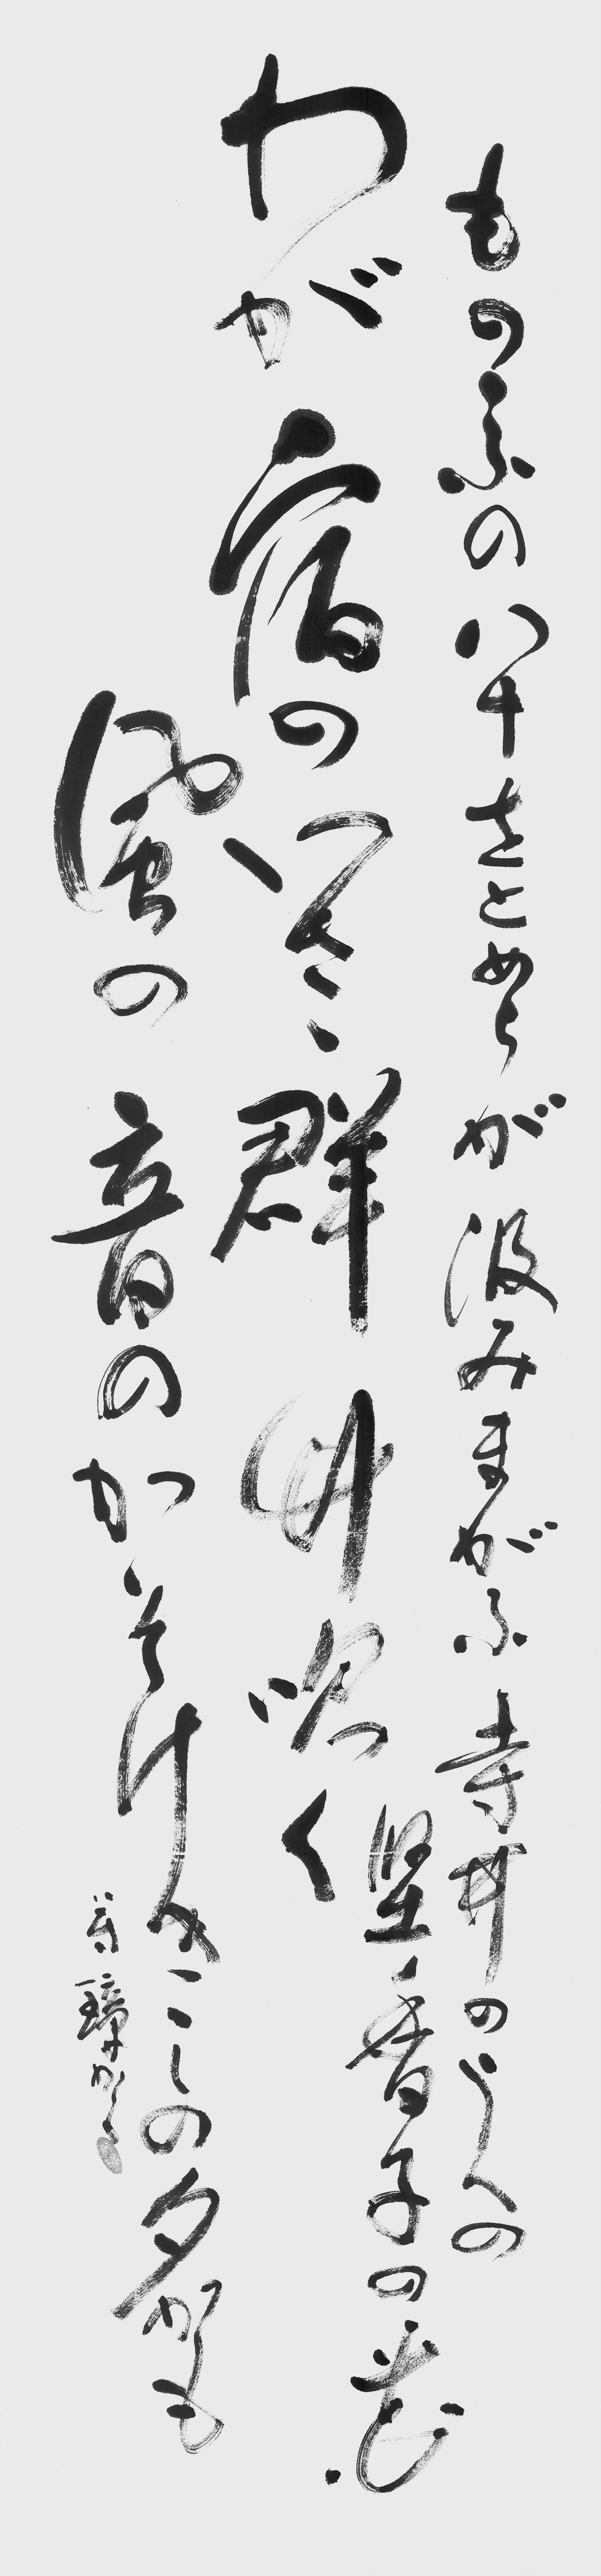 もの布の八十をとめらが汲みまがふ寺井のうへの
堅香子の花
わが宿のいさゝ群竹吹く
風の音のかそけきこの夕かも